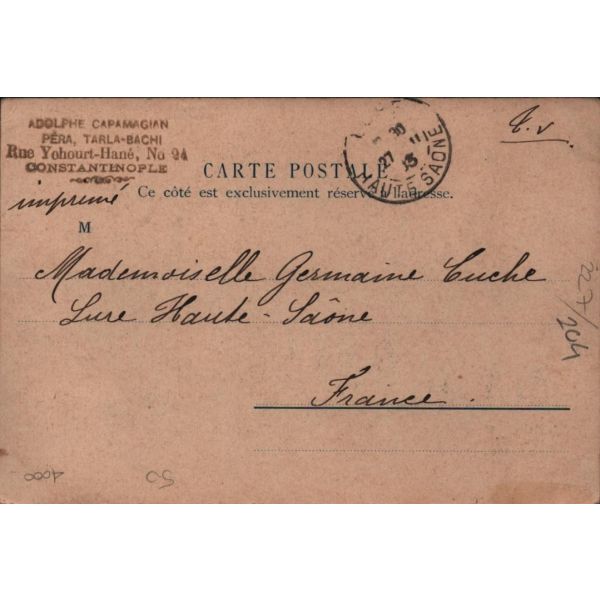 ADOLPHE CAPAMAGIAN
PÉRA, TARLA-BACHI
Rue Yohourt-Hané, No 94
CONSTANTINOPLE
imprimé
T.v
30
27 11
13
HAUTE SAÔNE
CARTE POSTALE
Ce côté est exclusivement réservé à l'adresse.
M
Mademoiselle Germaine Cuche
Lure Haute-Saône
France
204
50
4000